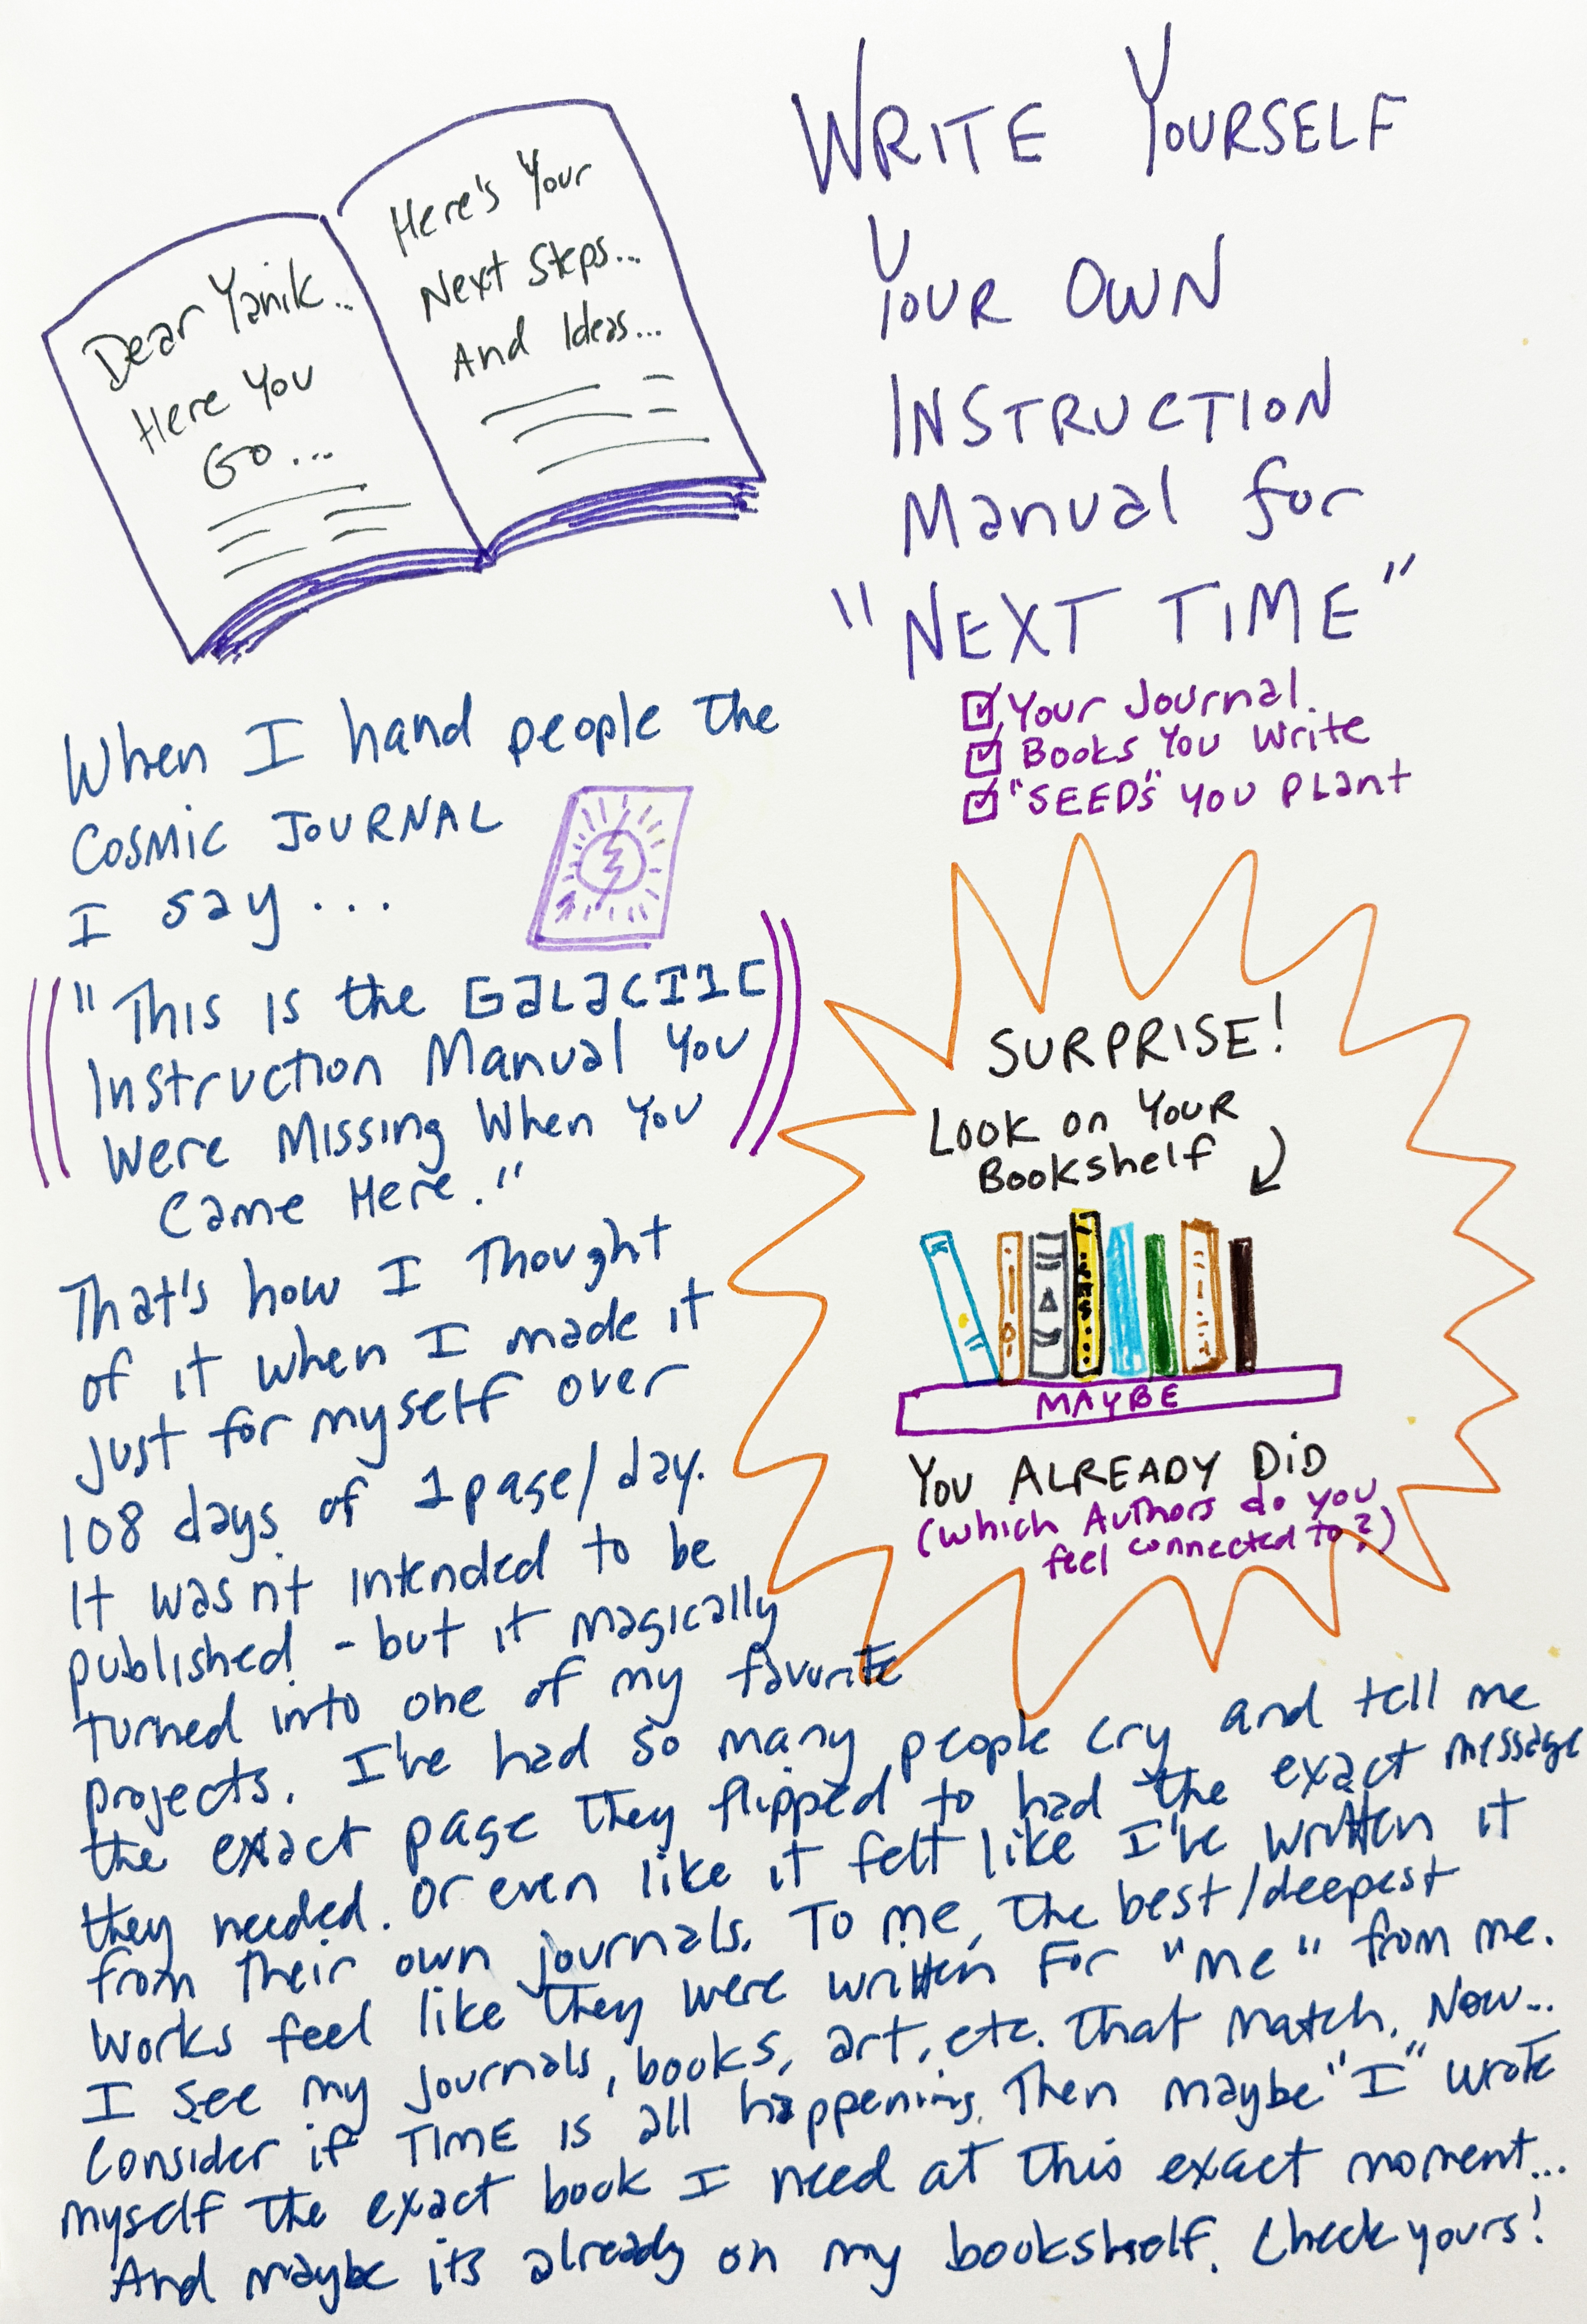 Dear Yanik...
Here You
Go...
Here's Your
Next Steps...
And Ideas...
WRITE YOURSELF
YOUR OWN
INSTRUCTION
Manual for
"NEXT TIME"
Your Journal.
Books You Write
"SEEDS" YOU PLANT
When I hand people the
COSMIC JOURNAL
I say...
"This is the GALACTIC
Instruction Manual You
Were Missing When You
Came Here."
That's how I Thought
of it when I made it
just for myself over
108 days of 1 page/day.
It wasn't intended to be
published - but it magically
turned into one of my favorite
projects. I've had so many people cry and tell me
the exact page they flipped to had the exact message
they needed. Or even like it felt like I've written it
from their own journals. To me, the best/deepest
works feel like they were written For "me" from me.
I see my journals, books, art, etc. that match. Now...
Consider if TIME is all happening. Then maybe "I" wrote
myself the exact book I need at this exact moment...
And maybe its already on my bookshelf. Check yours!
SURPRISE!
LOOK on YOUR
Bookshelf
MAYBE
YOU ALREADY DID
(which Authors do you
feel connected to?)